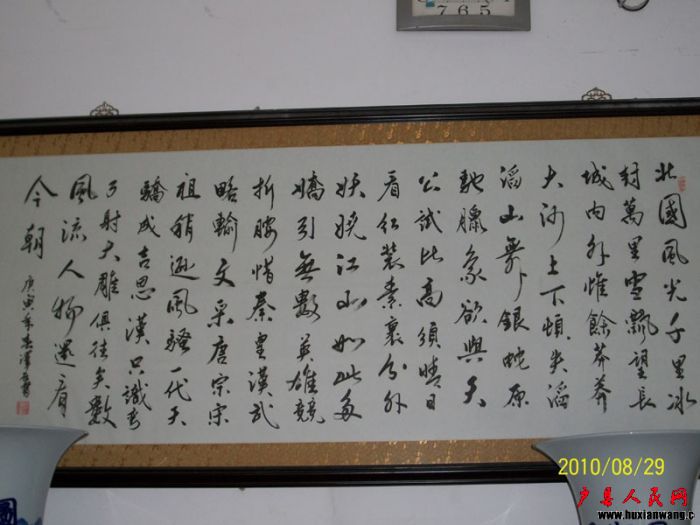 7 6 5
北國風光千里冰
封萬里雪飄望長
城内外惟餘莽莽
大河上下頓失滔
滔山舞銀蛇原
馳臘象欲與天
公試比高須晴日
看红装素裹分外
妖嬈江山如此多
嬌引無數英雄競
折腰惜秦皇漢武
略輸文采唐宗宋
祖稍逊風騷一代天
驕成吉思漢只識弯
弓射大雕俱往矣數
風流人物還看
今朝
庚寅年
2010/08/29
户县人民网
www.huxianwang.c